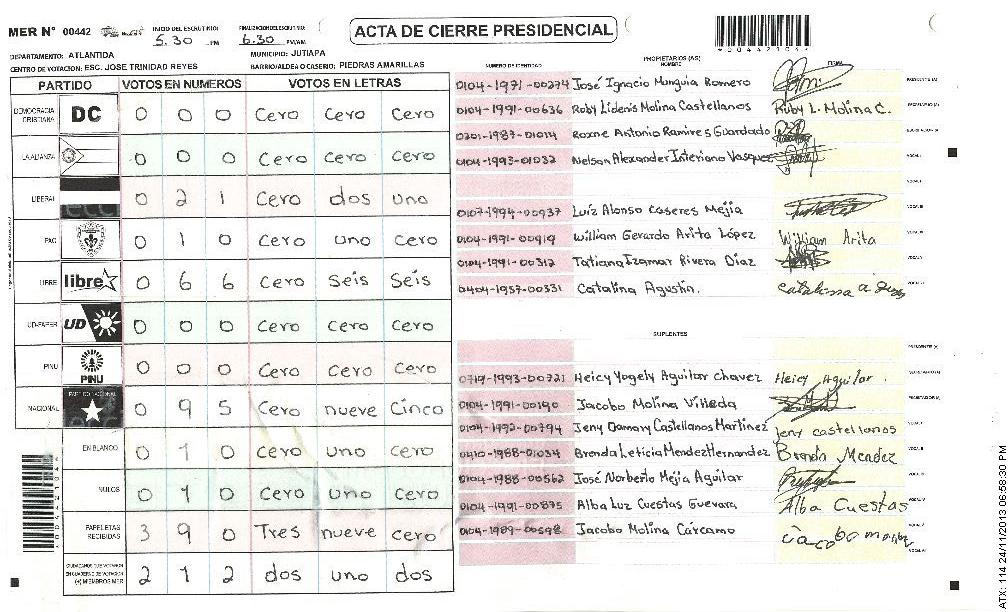 MER N° 00442
INICIO DEL ESCRUTINIO:
5.30 PM
FINALIZACION DEL ESCRUTINIO:
6.30 PM/AM
ACTA DE CIERRE PRESIDENCIAL
DEPARTAMENTO: ATLANTIDA
MUNICIPIO: JUTIAPA
CENTRO DE VOTACION: ESC. JOSE TRINIDAD REYES
BARRIO/ALDEA O CASERIO: PIEDRAS AMARILLAS
PARTIDO VOTOS EN NUMEROS VOTOS EN LETRAS
DEMOCRACIA CRISTIANA DC 0 0 0 Cero Cero Cero
LA ALIANZA 0 0 0 Cero Cero Cero
LIBERAL 0 2 1 Cero dos uno
PAC 0 1 0 Cero uno Cero
LIBRE libre 0 6 6 Cero Seis Seis
UD-FAPER UD 0 0 0 Cero Cero Cero
PINU PINU 0 0 0 Cero Cero Cero
NACIONAL PARTIDO NACIONAL 0 9 5 Cero nueve Cinco
EN BLANCO 0 1 0 Cero uno cero
NULOS 0 1 0 Cero uno Cero
PAPELETAS RECIBIDAS 3 9 0 Tres nueve cero
CIUDADANOS QUE VOTARON EN CUADERNO DE VOTACION (+) MIEMBROS MER 2 1 2 dos uno dos
PROPIETARIOS (AS)
NUMERO DE IDENTIDAD NOMBRE FIRMA
0104-1971-00274 José Ignacio Munguia Romero PRESIDENTE (A)
0104-1991-00636 Roby Lidenis Molina Castellanos Ruby L. Molina C. SECRETARIO (A)
0201-1987-01014 Roxne Antonio Ramires Guardado
0104-1993-01032 Nelson Alexander Interiano Vasquez VOCAL I
0107-1994-00937 Luiz Alonso Caseres Mejia
0104-1991-00919 William Gerardo Arita López William Arita
0104-1991-00312 Tatiana Izamar Rivera Díaz
0404-1957-00331 Catalina Agustin.
SUPLENTES
PRESIDENTE (A)
0719-1993-00721 Heicy Yogely Aguilar Chavez Heicy Aguilar. SECRETARIO (A)
0104-1991-00190 Jacobo Molina Villeda
0104-1992-00794 Jeny Damary Castellanos Martinez Jeny castellanos
0410-1988-01034 Brenda Leticia Mendez Hernandez Brenda Mendez
0104-1988-00562 José Norberto Mejia Aguilar
0104-1991-00875 Alba Luz Cuestas Guevara Alba Cuestas
0104-1989-00598 Jacobo Molina Cárcamo
ATX: 114 24/11/2013 06:58:30 PM